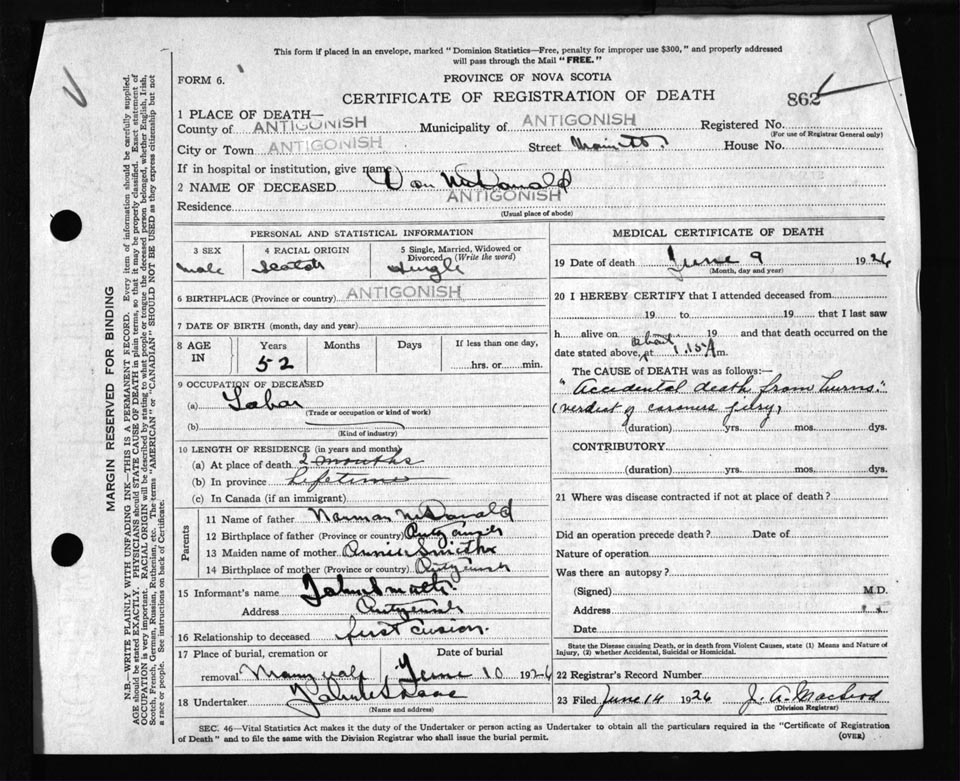 This form if placed in an envelope, marked "Dominion Statistics—Free, penalty for improper use $300," and properly addressed
will pass through the Mail "FREE."
FORM 6.
PROVINCE OF NOVA SCOTIA
CERTIFICATE OF REGISTRATION OF DEATH
862
1 PLACE OF DEATH—
County of ANTIGONISH Municipality of ANTIGONISH Registered No.
(For use of Registrar General only)
City or Town ANTIGONISH Street Main St. House No.
If in hospital or institution, give name
2 NAME OF DECEASED Dan McDonald
Residence ANTIGONISH
(Usual place of abode)
PERSONAL AND STATISTICAL INFORMATION
3 SEX 4 RACIAL ORIGIN 5 Single, Married, Widowed or
Divorced (Write the word)
male Scotch Single
6 BIRTHPLACE (Province or country) ANTIGONISH
7 DATE OF BIRTH (month, day and year)
8 AGE IN Years Months Days If less than one day,
52 hrs. or min.
9 OCCUPATION OF DECEASED
(a) Labor
(Trade or occupation or kind of work)
(b)
(Kind of industry)
10 LENGTH OF RESIDENCE (in years and months)
(a) At place of death 2 months
(b) In province Lifetime
(c) In Canada (if an immigrant)
Parents
11 Name of father Norman McDonald
12 Birthplace of father (Province or country)
13 Maiden name of mother Annie Smith
14 Birthplace of mother (Province or country)
15 Informant's name
Address
16 Relationship to deceased first cusion.
17 Place of burial, cremation or Date of burial
removal June 10 1926
18 Undertaker
(Name and address)
MEDICAL CERTIFICATE OF DEATH
19 Date of death June 9 1926
(Month, day and year)
20 I HEREBY CERTIFY that I attended deceased from
19 to 19 that I last saw
h alive on 19 and that death occurred on the
about
date stated above, at 1.15 A m.
The CAUSE of DEATH was as follows:—
"Accidental death from burns."
(verdict of coroners jury)
(duration) yrs. mos. dys.
CONTRIBUTORY
(duration) yrs. mos. dys.
21 Where was disease contracted if not at place of death?
Did an operation precede death? Date of
Nature of operation
Was there an autopsy?
(Signed) M.D.
Address
Date
State the Disease causing Death, or in death from Violent Causes, state (1) Means and Nature of
Injury, (2) whether Accidental, Suicidal or Homicidal.
22 Registrar's Record Number
23 Filed June 14 1926 J. A. Macleod
(Division Registrar)
SEC. 46—Vital Statistics Act makes it the duty of the Undertaker or person acting as Undertaker to obtain all the particulars required in the "Certificate of Registration
of Death" and to file the same with the Division Registrar who shall issue the burial permit.
(OVER)
MARGIN RESERVED FOR BINDING
N.B.—WRITE PLAINLY WITH UNFADING INK—THIS IS A PERMANENT RECORD. Every item of information should be carefully supplied.
AGE should be stated EXACTLY. PHYSICIANS should STATE CAUSE OF DEATH in plain terms, so that it may be properly classified. Exact statement of
OCCUPATION is very important. RACIAL ORIGIN will be described by stating to what people or tongue the deceased person belonged, whether English, Irish,
Scotch, French, German, Russian, Ruthenian, etc. The terms "AMERICAN" or "CANADIAN" SHOULD NOT BE USED as they express citizenship but not
a race or people. See instructions on back of Certificate.